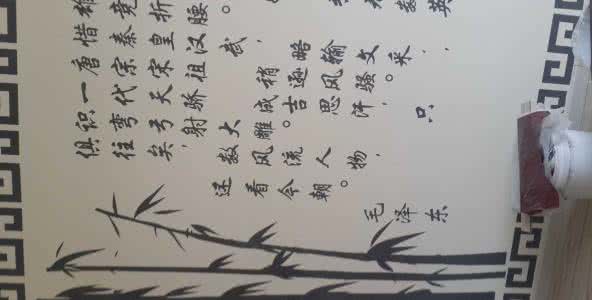 数英
雄竞折腰。
惜秦皇汉武，略输文采，
唐宗宋祖，稍逊风骚。
一代天骄，成吉思汗，只
识弯弓射大雕。
俱往矣，数风流人物，
还看今朝。
毛泽东